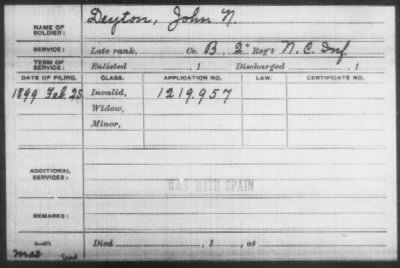 NAME OF SOLDIER: Deyton, John N.
SERVICE: Late rank, Co. B 2" Reg't N.C. Inf.
TERM OF SERVICE: Enlisted , 1 Discharged , 1
DATE OF FILING. CLASS. APPLICATION NO. LAW. CERTIFICATE NO.
1899 Feb. 25 Invalid, 1219.957
Widow,
Minor,
ADDITIONAL SERVICES:
WAR WITH SPAIN
REMARKS:
Died , 1 , at